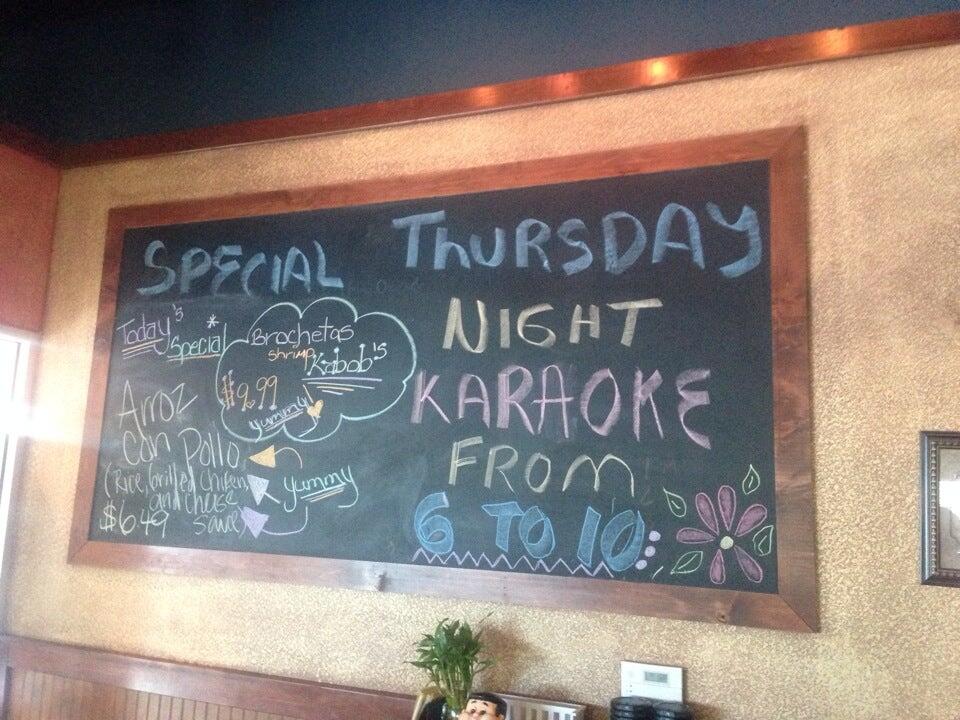 SPECIAL
Today's
Special
Brochetas
shrimp
Kabob's
$9.99
yummy!
Arroz
con Pollo
(Rice, Grilled Chiken,
and cheese
sauce
$6.49
yummy
THURSDAY
NIGHT
KARAOKE
FROM
6 TO 10